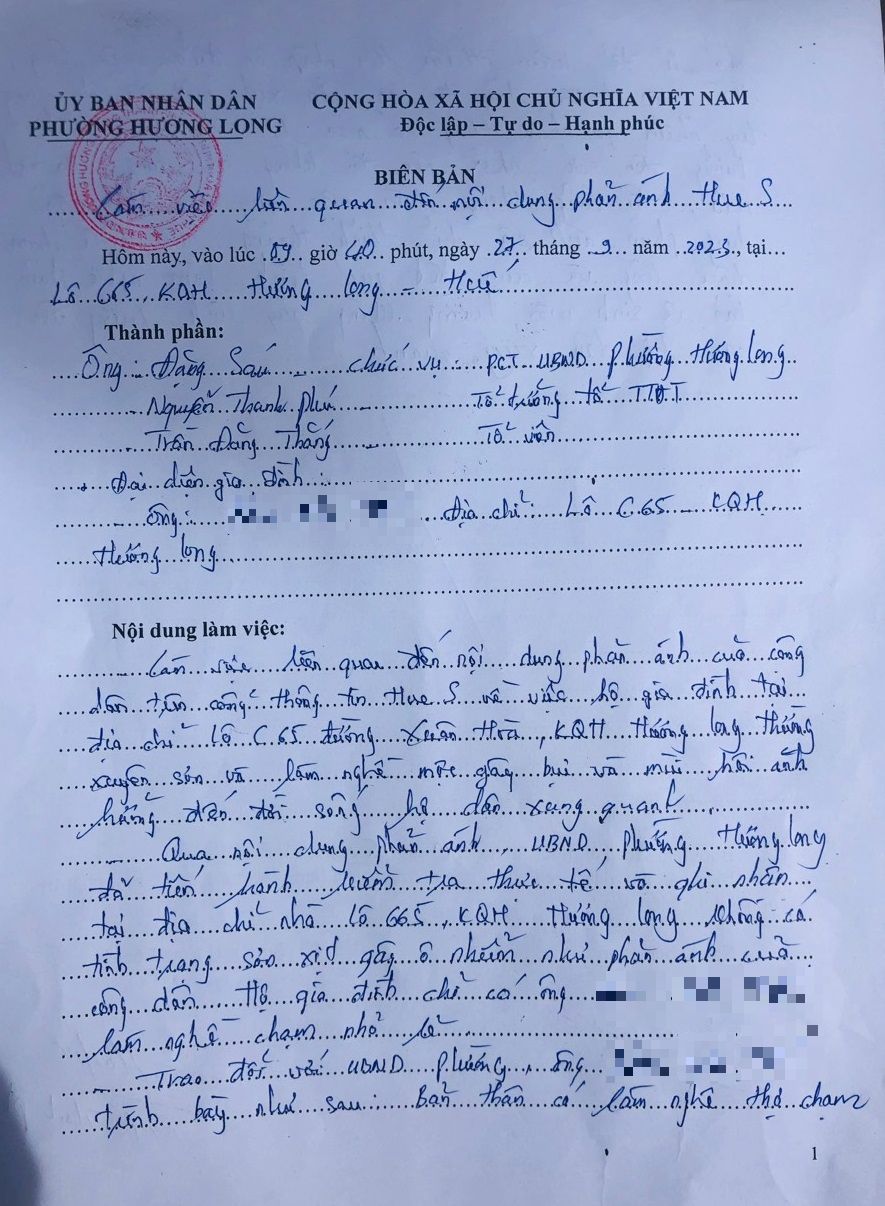 ỦY BAN NHÂN DÂN
PHƯỜNG HƯƠNG LONG
CỘNG HÒA XÃ HỘI CHỦ NGHĨA VIỆT NAM
Độc lập – Tự do – Hạnh phúc
BIÊN BẢN
Làm việc liên quan đến nội dung phản ánh Hue S
Hôm này, vào lúc 09 giờ 40 phút, ngày 27 tháng 9 năm 2023, tại
Lô C65, KQH Hương Long - Huế
Thành phần:
Ông: Đặng Sáu chức vụ: PCT UBND Phường Hương Long
Nguyễn Thanh Phú Tổ trưởng tổ
Trần Đăng Thắng Tổ viên
Đại diện gia đình:
Ông: Địa chỉ: Lô C65 KQH
Hương Long
Nội dung làm việc:
Làm việc liên quan đến nội dung phản ánh của công
dân trên cổng thông tin Hue S về việc hộ gia đình tại
địa chỉ lô C65 đường Xuân Hòa, KQH Hương Long thường
xuyên sơn và làm nghề mộc gây bụi và mùi hôi ảnh
hưởng đến đời sống hộ dân xung quanh
Qua nội dung phản ánh, UBND phường Hương Long
đã tiến hành kiểm tra thực tế và ghi nhận
tại địa chỉ nhà lô C65, KQH Hương Long không có
tình trạng sơn xịt gây ô nhiễm như phản ánh của
công dân. Hộ gia đình chỉ có ông
làm nghề chạm nhỏ lẻ
Trao đổi với UBND phường, ông
trình bày như sau: Bản thân có làm nghề thợ chạm
1